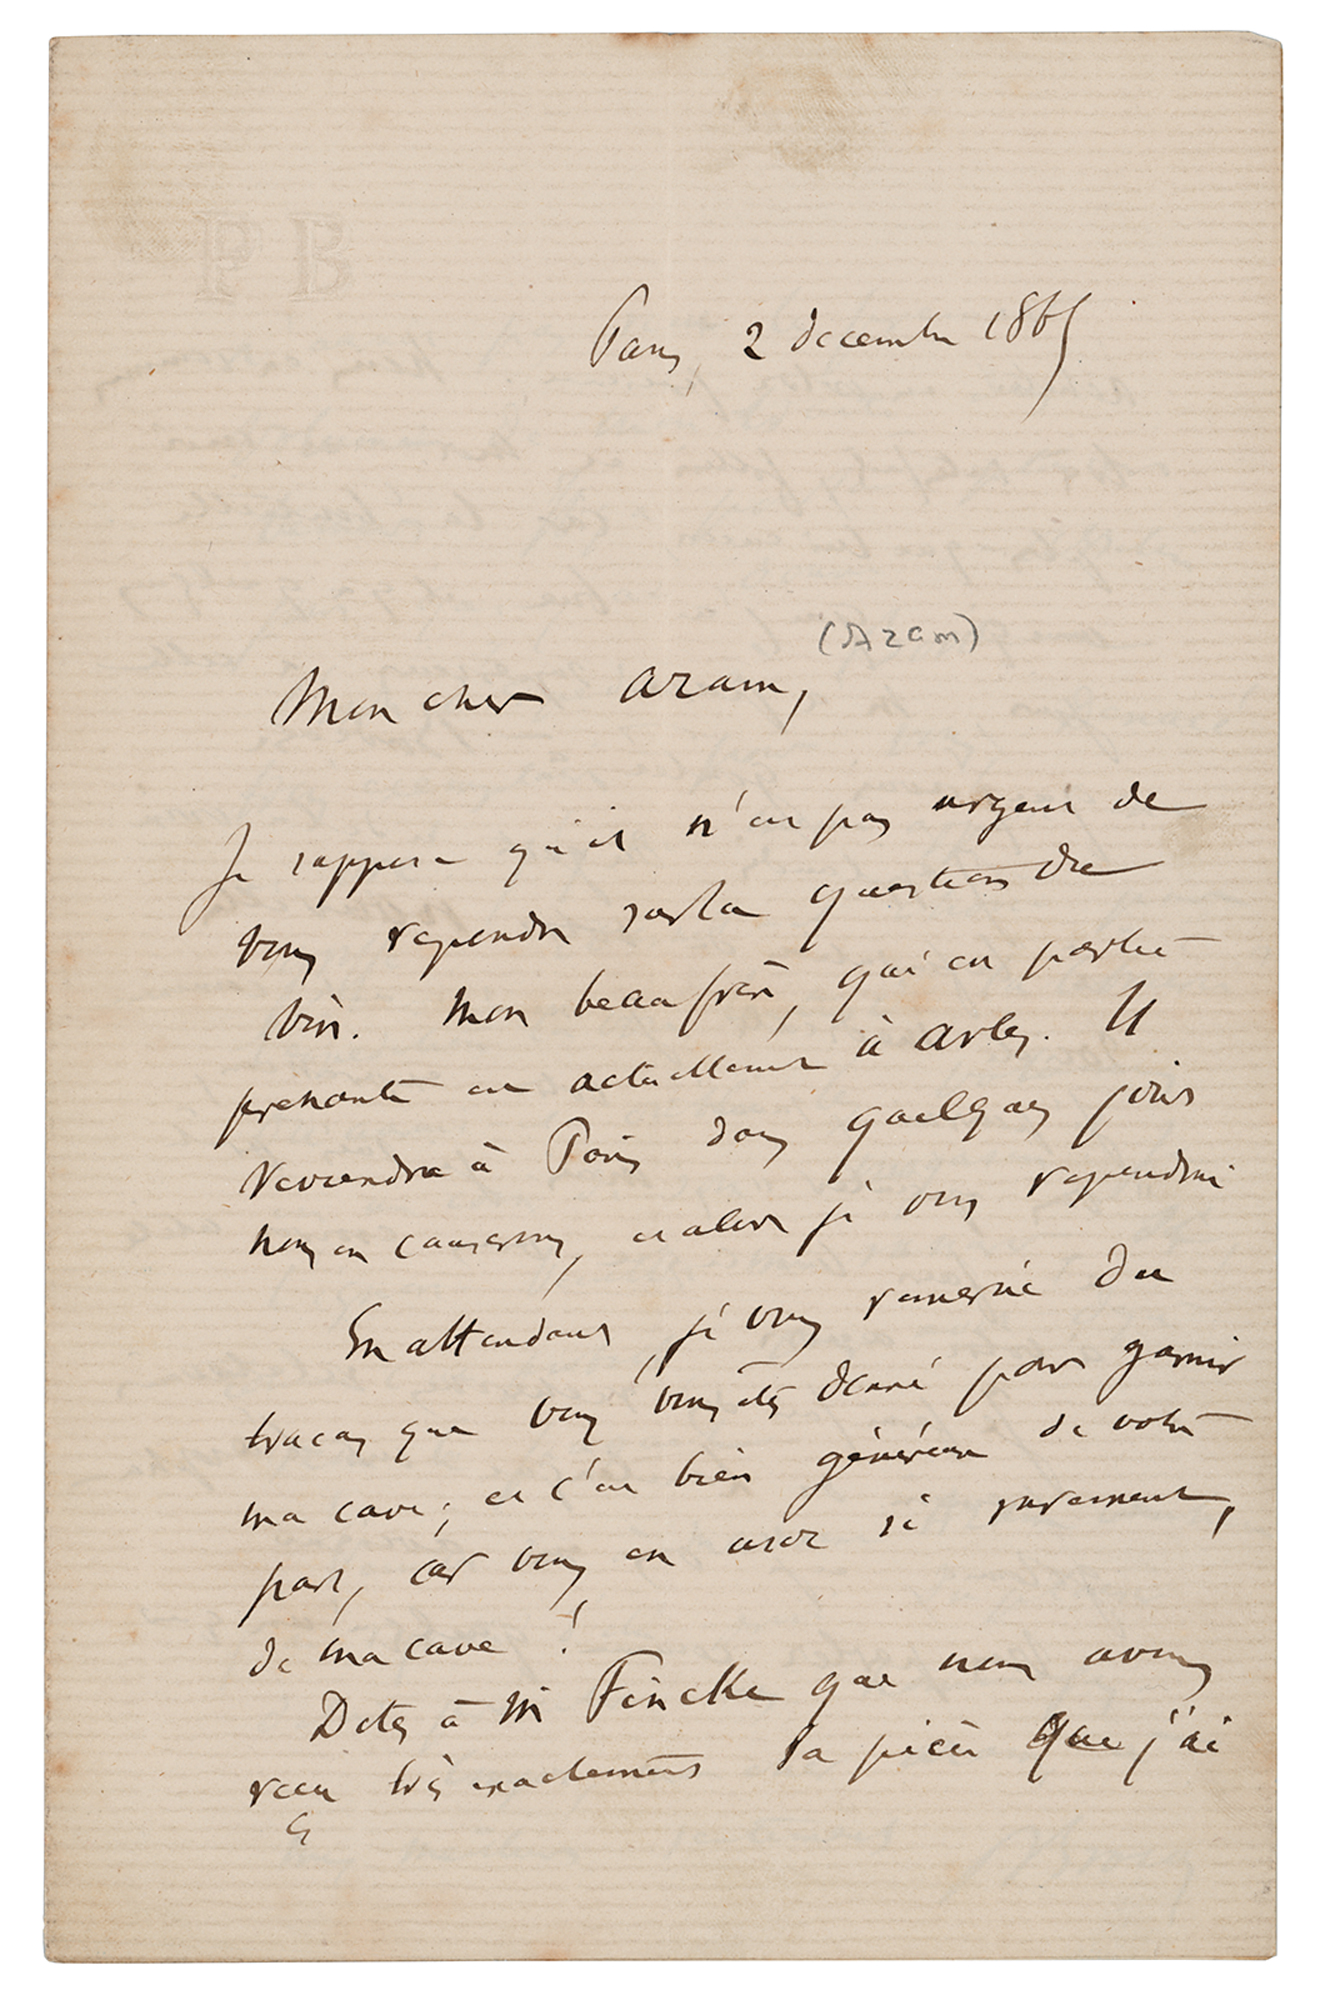 P B
Paris, 2 decembre 1865
(Azam)
Mon cher Azam,
Je suppose qu'il n'est pas urgent de
vous repondre sur la question du
vin. Mon beaufrère, qui en partie
prenante est actuellement à Arles. Il
reviendra à Paris dans quelques jours
nous en causerons, et alors je vous repondrai
En attendant, je vous remercie du
tracas que vous vous êtes donné pour garnir
ma cave; et c'est bien généreux de votre
part, car vous en usez si rarement,
de ma cave !
Dites à Mr Fincke que nous avons
reçu très exactement la pièce que j'ai